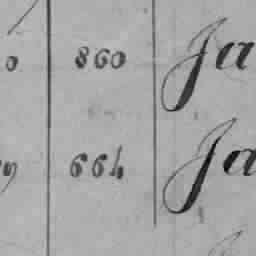 0 860 Ja
9 664 Ja